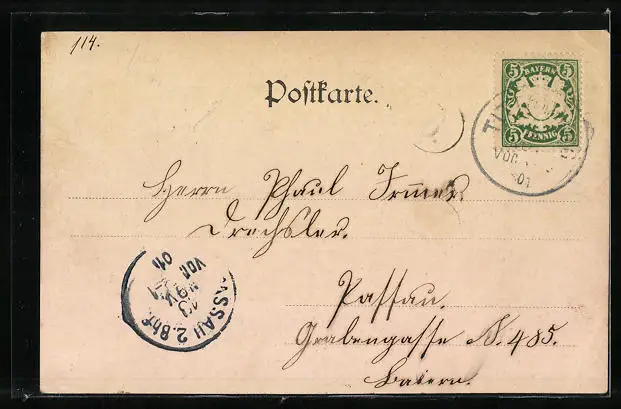 114.
Postkarte.
5 BAYERN 5
5 PFENNIG 5
VOR
01
Herrn Phaul Irmer
Drechsler.
Passau.
Grabengasse N. 485.
Baiern.
PASSAU 2. Bhf.
VOR
01